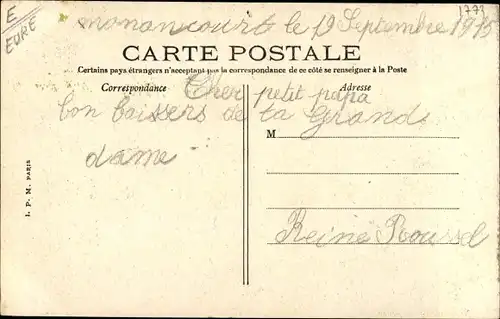 E
EURE
1773
monancourt le 19 Septembre 1915
CARTE POSTALE
Certains pays étrangers n'acceptant pas la correspondance de ce côté se renseigner à la Poste
Correspondance
Adresse
Cher petit papa
bon baisers de ta Grand
dame
M
Reine Roussel
I. P. M. PARIS